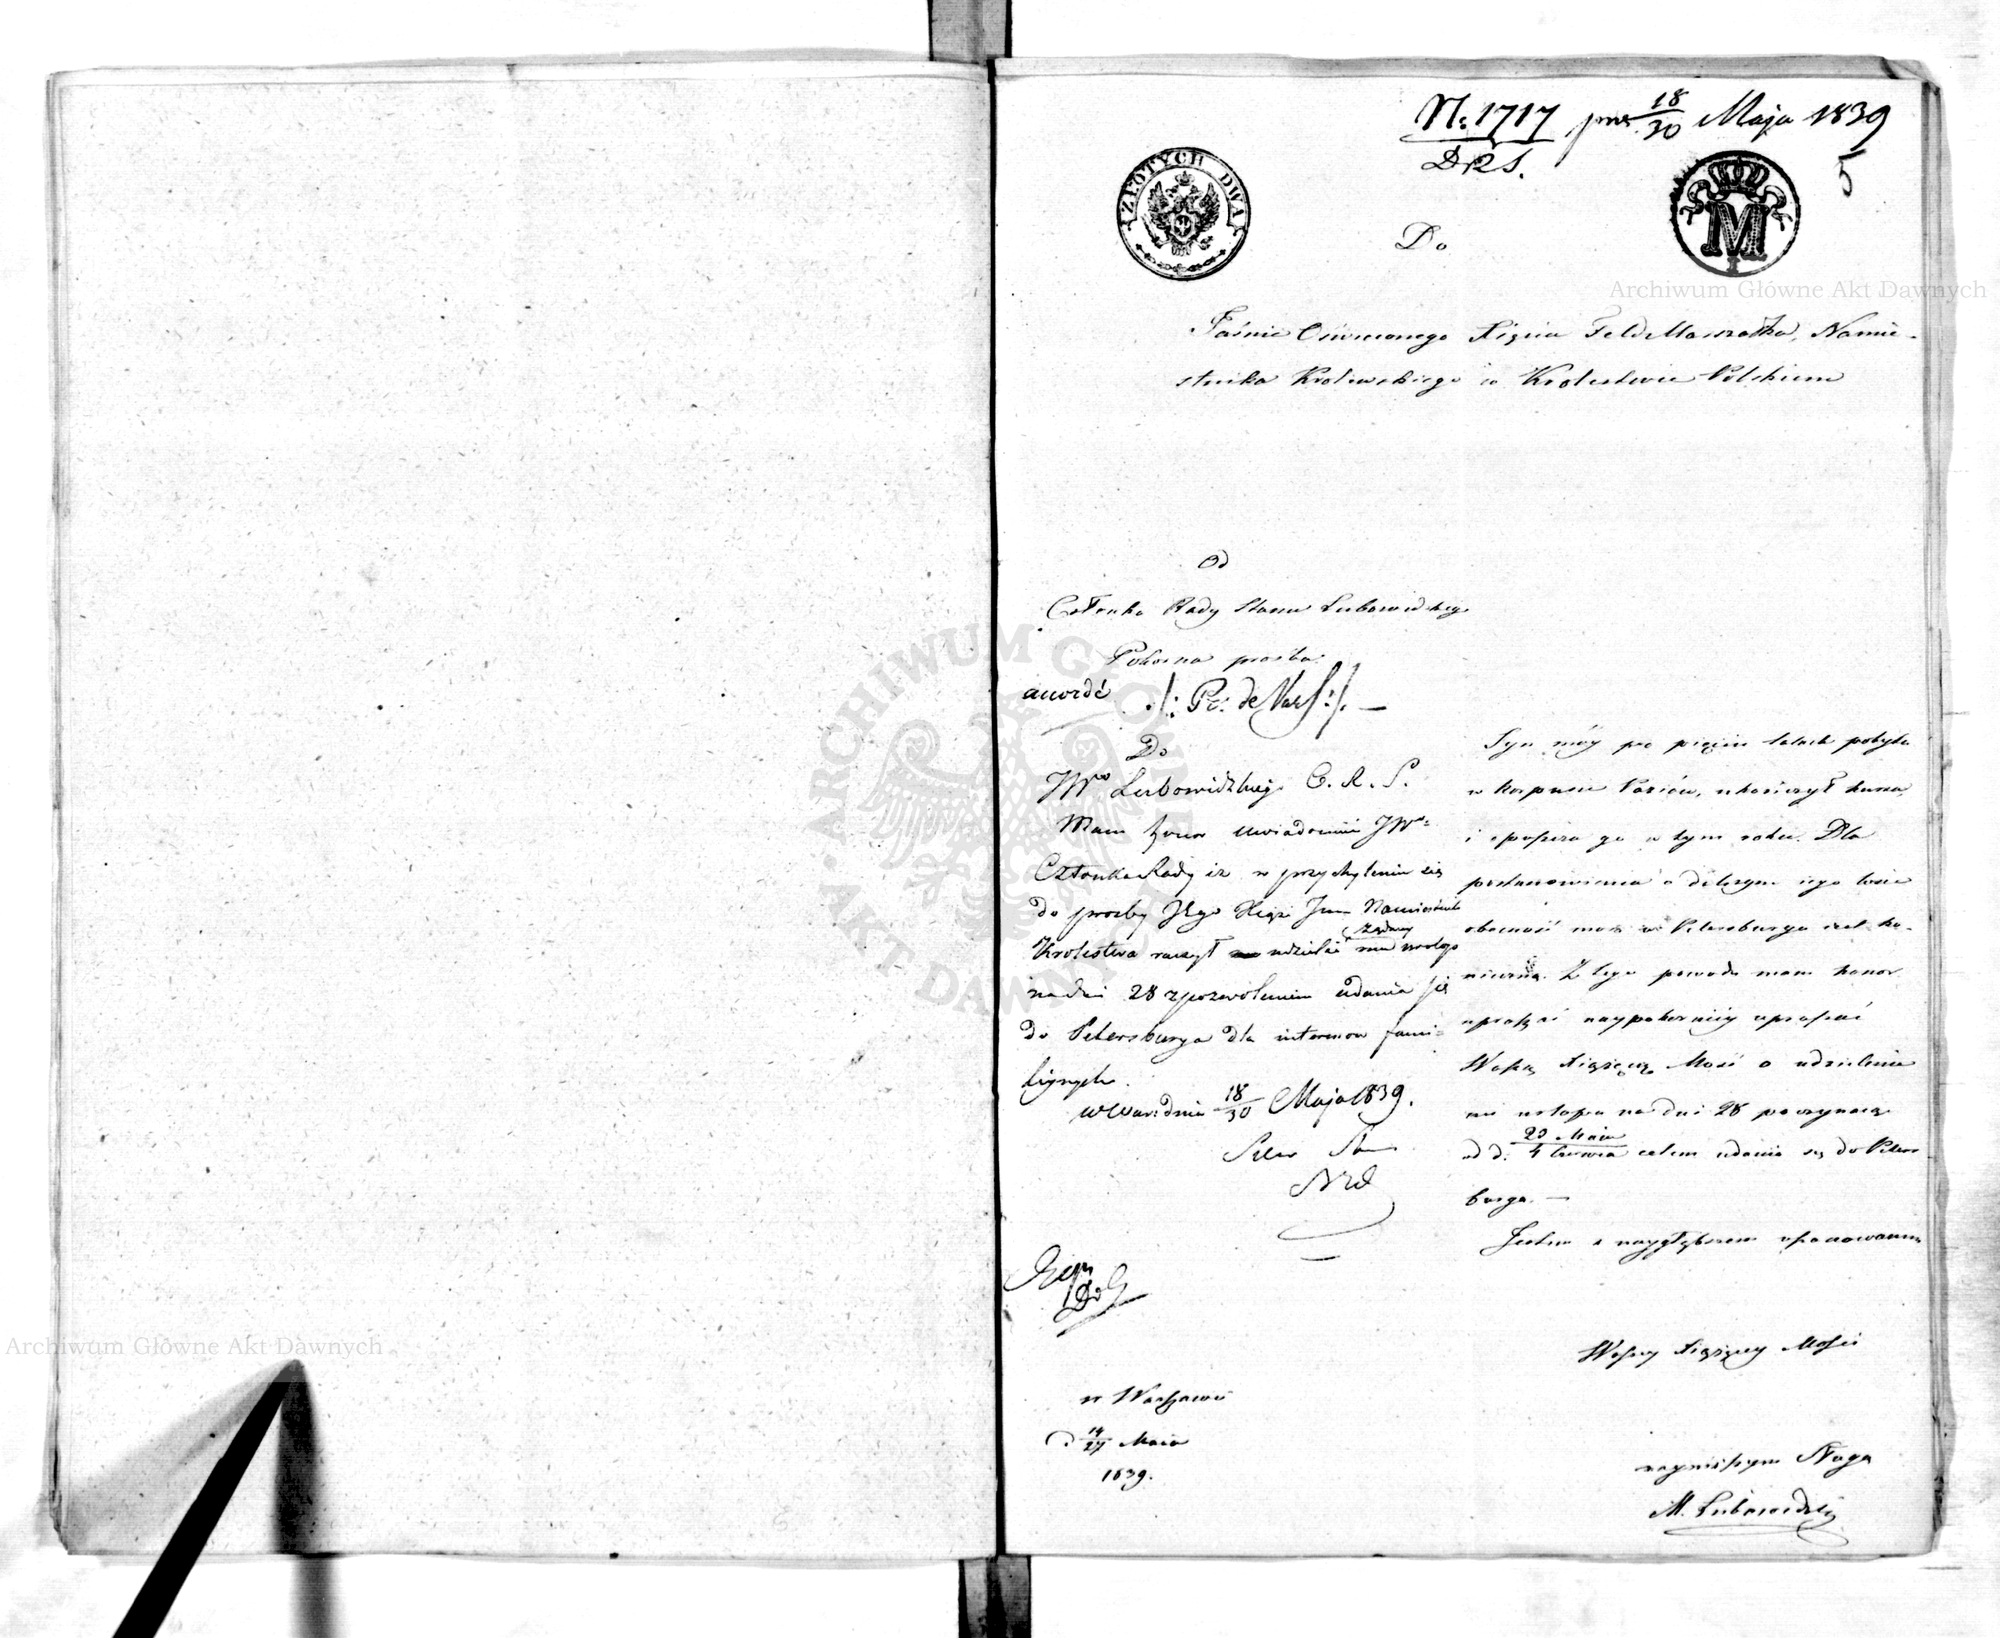 N: 1717 pre 18/30 Maja 1839
DRS.
5
ZŁOTYCH DWA
M
I
Do
Archiwum Główne Akt Dawnych
Jaśnie Oświeconego Xięcia FeldMarszałka, Namie-
stnika Krolewskiego w Krolestwie Polskiem
Od
Członka Rady Stanu Lubowidzkiego
Pokorna prosba.
accordé
Pr: de Vars
Do
JWo Lubowidzkiego C. R. S.
Mam honor uwiadomić JWo
Członka Rady iż w przychyleniu się
do prosby Jego Xiąże Jmć Namiestnik
Krolestwa raczył udzielić mu urlop
żądany
na dni 28 z pozwoleniem udania się
do Petersburga dla interesow fami-
lijnych.
w Wars: dnia 18/30 Maja 1839.
Sekr Stanu
Syn móy po pięciu latach pobytu
w korpusie Paziów, ukończył kurs,
i opuszcza go w tym roku. Dla
postanowienia o dalszym iego losie
obecność moia w Petersburgu iest ko-
nieczną. Z tego powodu mam honor
naypokorniey upraszać
Waszą Xiążęcą Mość o udzielenie
mi urlopu na dni 28 poczynając
od d. 23 Maia/4 Czerwca celem udania się do Peters
burga. —
Jestem z naygłębszem uszanowaniem
Waszey Xiążęcey Mości
w Warszawie
d 14/27 Maia
1839.
nayniższym Sługą
M. Lubowidzki
Archiwum Główne Akt Dawnych
ARCHIWUM GŁÓWNE AKT DAWNYCH